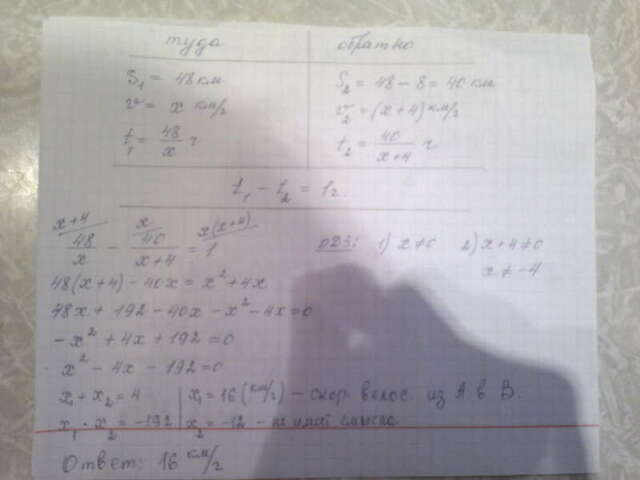 туда обратно
S₁ = 48 км S₂ = 48 - 8 = 40 км
v = x км/г v₂ = (x+4) км/г
t₁ = 48/x г t₂ = 40/(x+4) г
t₁ - t₂ = 1г.
x+4 x x(x+4)
48/x - 40/(x+4) = 1 ОДЗ: 1) x ≠ 0 2) x+4 ≠ 0
x ≠ -4
48(x+4) - 40x = x² + 4x
48x + 192 - 40x - x² - 4x = 0
-x² + 4x + 192 = 0
x² - 4x - 192 = 0
x₁ + x₂ = 4 x₁ = 16 (км/г) - скор. велос. из A в B.
x₁ · x₂ = -192 x₂ = -12 - не имеет смысла
Ответ: 16 км/г